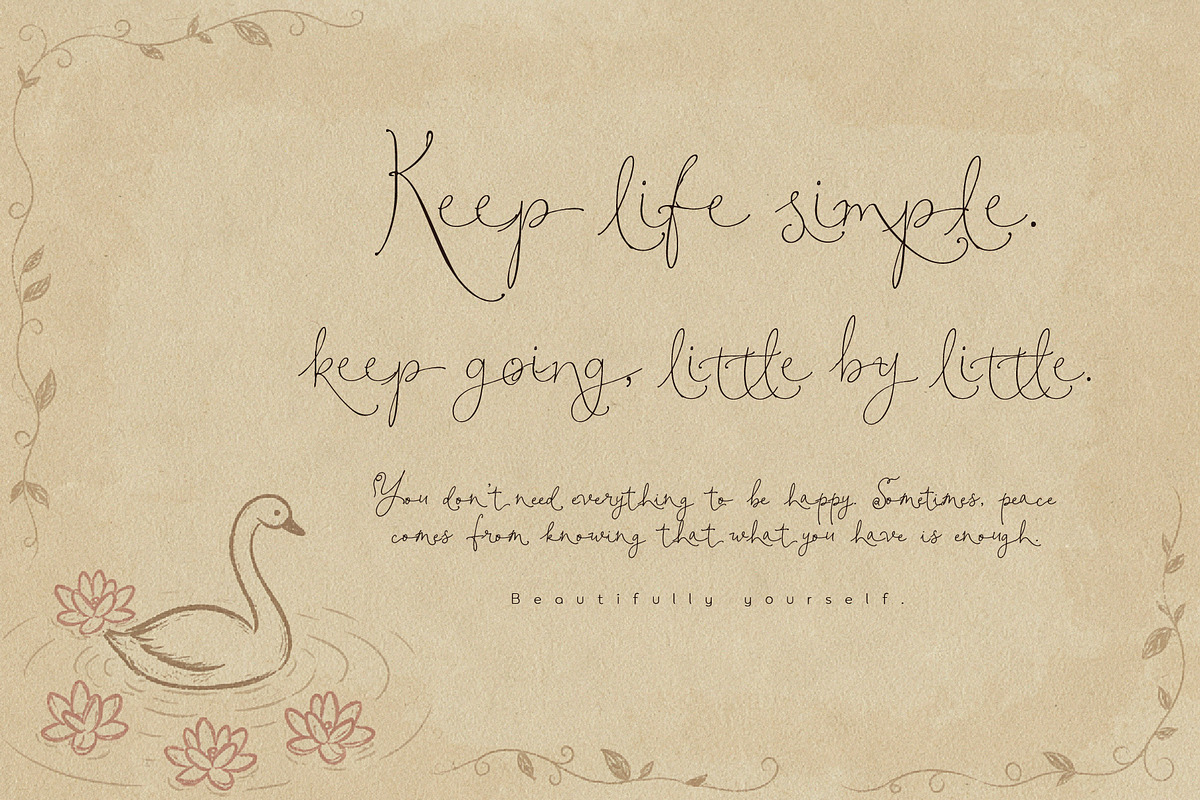 Keep life simple.
keep going, little by little.
You don't need everything to be happy. Sometimes, peace
comes from knowing that what you have is enough.
Beautifully yourself.